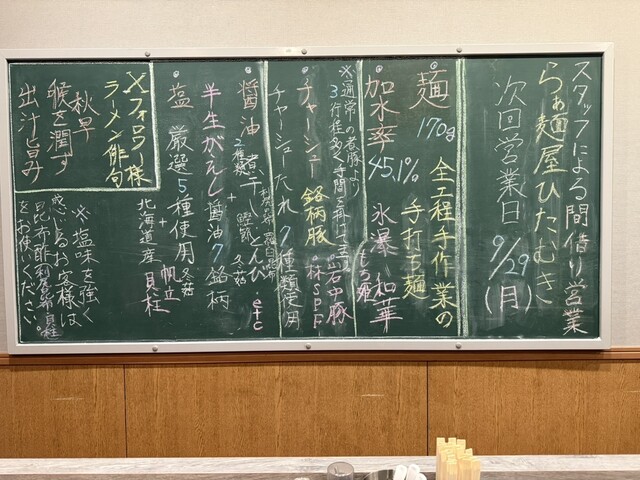 スタッフによる間借り営業
らぁ麺屋ひたむき
次回営業日 9/29(月)
麺 170g 全工程手作業の
手打ち麺
加水率 45.1% 氷瀑 和華
もち姫
※通常の煮豚より
3行程多く手間を掛けてます
チャーシュー 銘柄豚 岩中豚
林SPF
チャーシューたれ 7種類使用
醤油
2種類 煮干 とんび etc
鰹節 冬菇
半生がえし 醤油7銘柄
塩 厳選5種使用 冬菇 帆立
北海道産 貝柱
Xフォロワー様
ラーメン俳句
秋早
喉を潤す
出汁旨み
※塩味を強く
感じるお客様は
昆布酢 利尻昆布 貝柱
をお使いください。